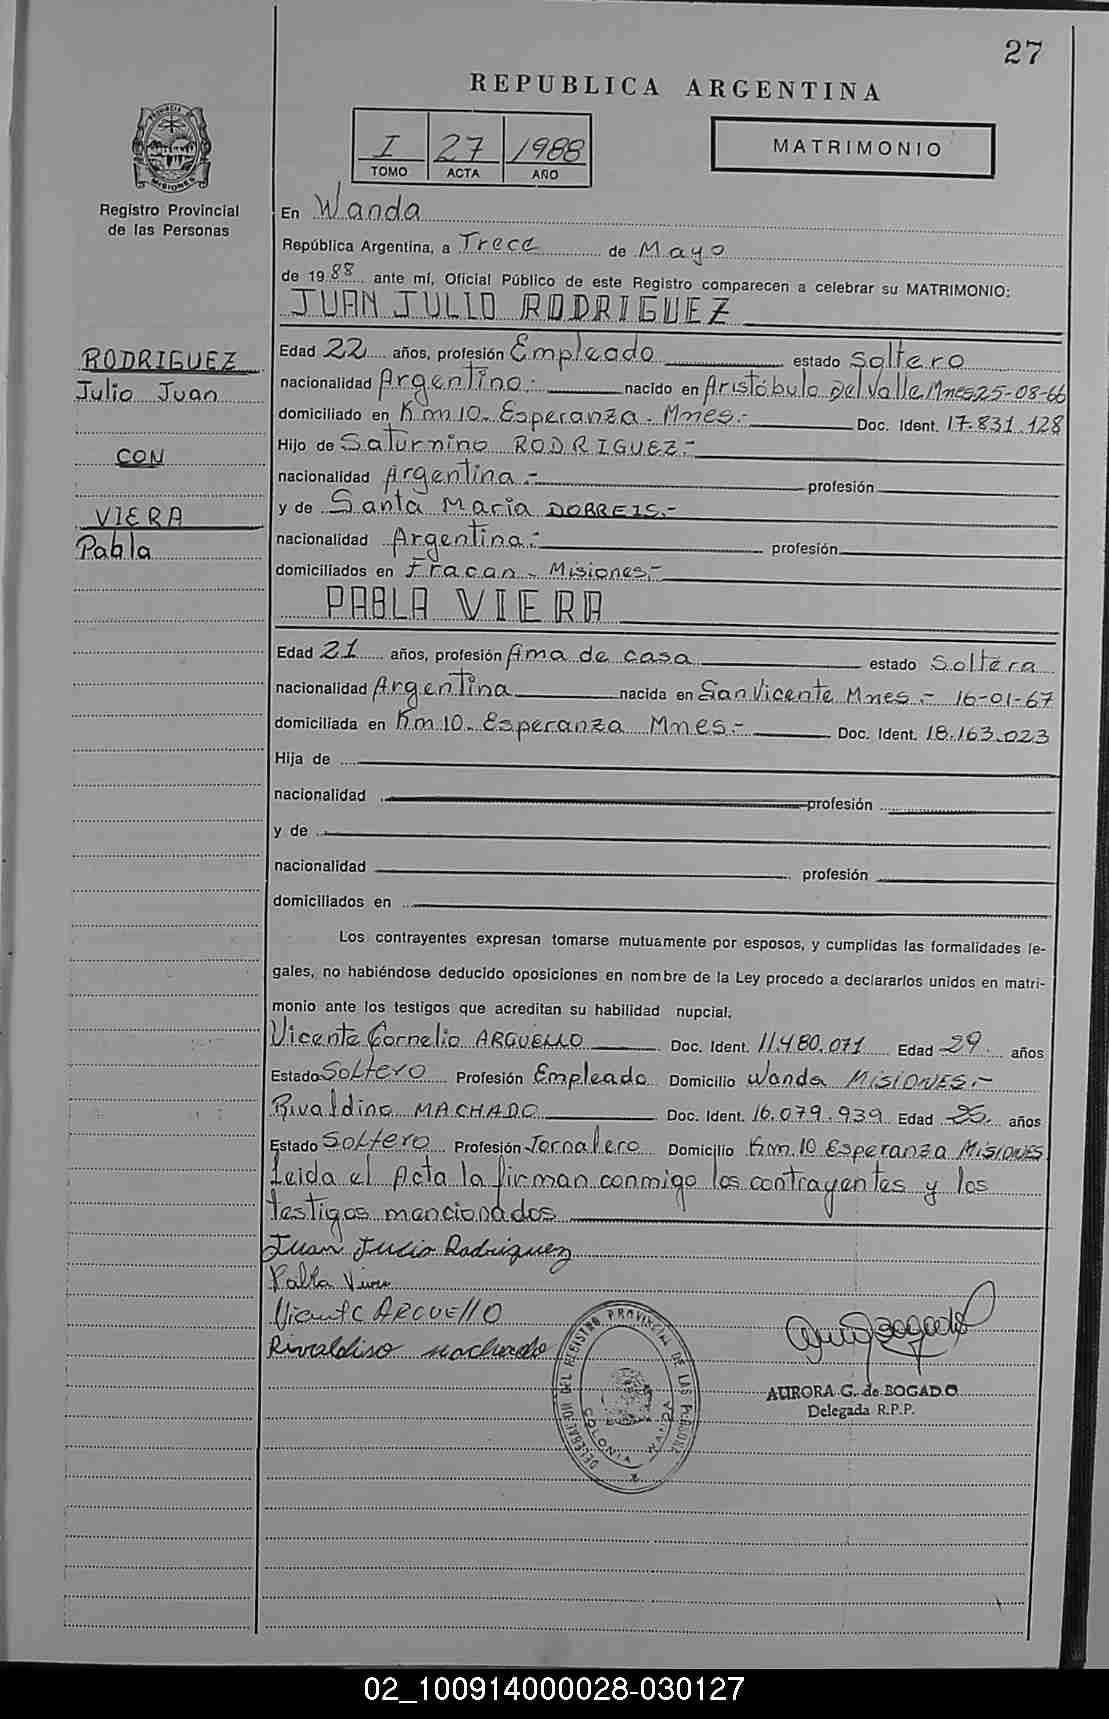 27
REPUBLICA ARGENTINA
I 27 1988
TOMO ACTA AÑO
MATRIMONIO
PROVINCIA MISIONES
Registro Provincial
de las Personas
En Wanda
República Argentina, a Trece de Mayo
de 1988 ante mí, Oficial Público de este Registro comparecen a celebrar su MATRIMONIO:
JUAN JULIO RODRIGUEZ
RODRIGUEZ
Julio Juan
CON
VIERA
Pabla
Edad 22 años, profesión Empleado estado Soltero
nacionalidad Argentino.- nacido en Aristóbulo Del Valle Mnes 25-08-66
domiciliado en Km 10- Esperanza - Mnes.- Doc. Ident. 17.831.128
Hijo de Saturnino RODRIGUEZ.-
nacionalidad Argentina.- profesión
y de Santa Maria DORREIS.-
nacionalidad Argentina.- profesión
domiciliados en Fracan - Misiones.-
PABLA VIERA
Edad 21 años, profesión Ama de casa estado Soltera
nacionalidad Argentina nacida en San Vicente Mnes.- 16-01-67
domiciliada en Km 10- Esperanza Mnes.- Doc. Ident. 18.163.023
Hija de
nacionalidad profesión
y de
nacionalidad profesión
domiciliados en
Los contrayentes expresan tomarse mutuamente por esposos, y cumplidas las formalidades le-
gales, no habiéndose deducido oposiciones en nombre de la Ley procedo a declararlos unidos en matri-
monio ante los testigos que acreditan su habilidad nupcial.
Vicente Cornelio ARGUELLO Doc. Ident. 11.480.071 Edad 29 años
Estado Soltero Profesión Empleado Domicilio Wanda MISIONES.-
Rivaldino MACHADO Doc. Ident. 16.079.939 Edad 25 años
Estado Soltero Profesión Jornalero Domicilio Km. 10 Esperanza MISIONES
Leida el Acta la firman conmigo los contrayentes y los
testigos mencionados
Juan Julio Rodriguez
Pabla Viera
Vicente ARGUELLO
Rivaldiso machado
DELEGACION DEL REGISTRO PROVINCIAL DE LAS PERSONAS
COLONIA WANDA
AURORA G. de BOGADO
Delegada R.P.P.
02_100914000028-030127